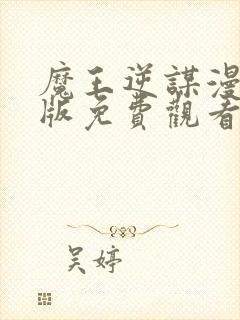 魔王逆謀漫
版免費觀看
吳婷